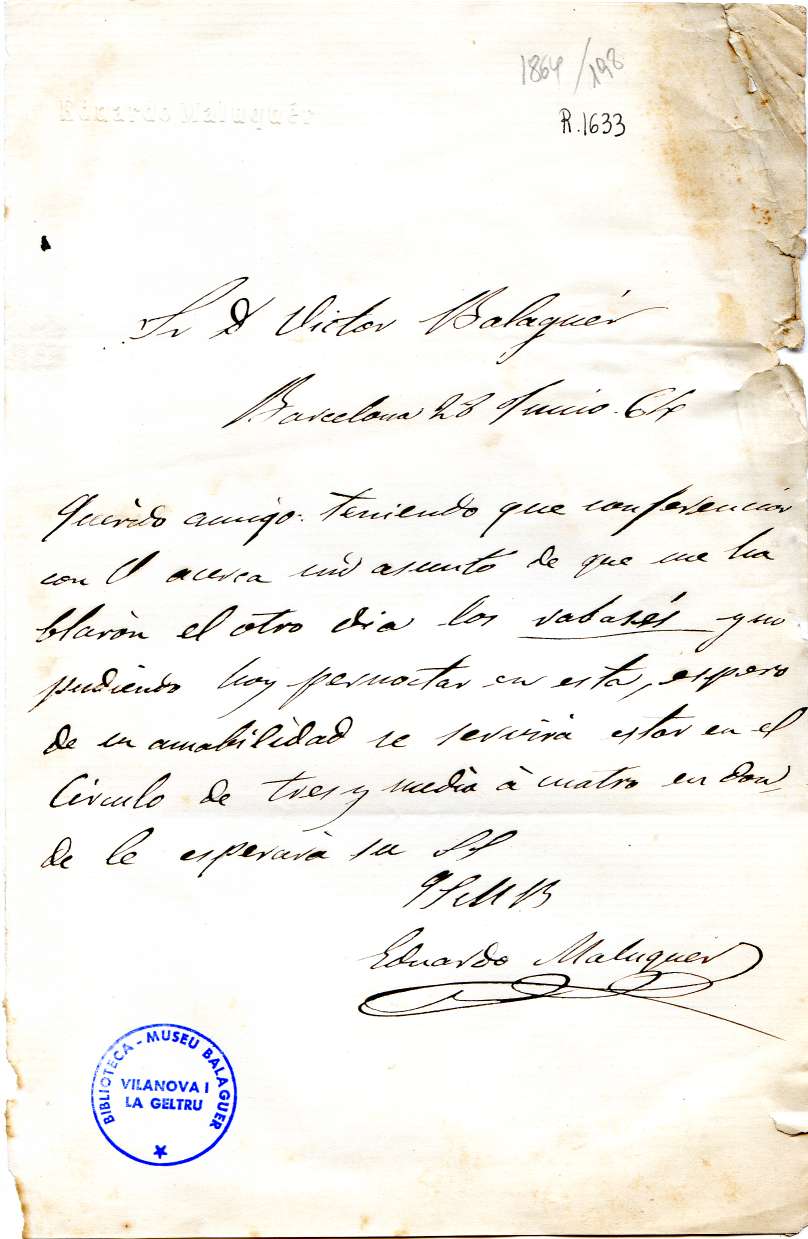 1864/198
R.1633
Eduardo Maluquér
Sr D Victor Balaguér
Barcelona 28 Junio. 64
Querido amigo: teniendo que conferenciar
con V acerca un asunto de que me ha
blarón el otro dia los rabasés y no
pudiendo hoy pernoctar en esta, espero
de su amabilidad se servirá estar en el
Círculo de tres y media á cuatro en don
de le esperará su SS
QSMB
Eduardo Maluquer
BIBLIOTECA - MUSEU BALAGUER
VILANOVA I
LA GELTRU